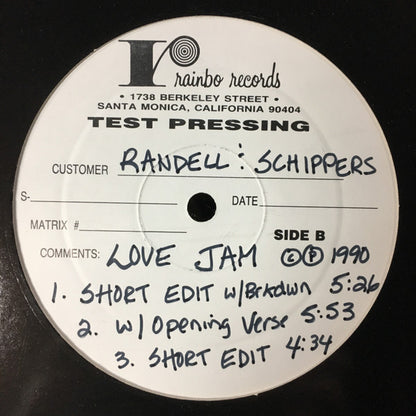 r
rainbo records
• 1738 BERKELEY STREET •
SANTA MONICA, CALIFORNIA 90404
TEST PRESSING
CUSTOMER RANDELL : SCHIPPERS
S- DATE
MATRIX # SIDE B
COMMENTS: LOVE JAM © ℗ 1990
1. SHORT EDIT w/Brkdwn 5:26
2. w/ Opening Verse 5:53
3. SHORT EDIT 4:34